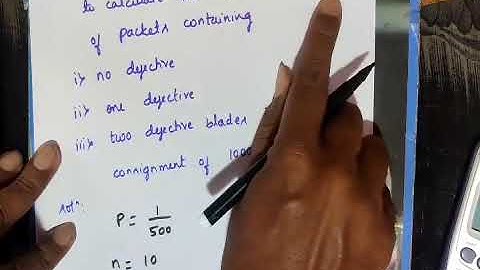 to calculate
of packets containing
i) no defective
ii) one defective
iii) two defective blades
consignment of 1000
Soln:
P = 1/500
n = 10